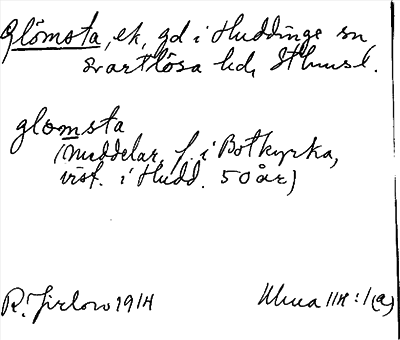 Glömsta, ek, gd i Huddinge sn,
Svartlösa hd, Sthmsl.
glomsta
(Meddelar, f. i Botkyrka,
vist. i Hudd. 50 år)
R. Jirlow 1914 Ulma 114:1(a)